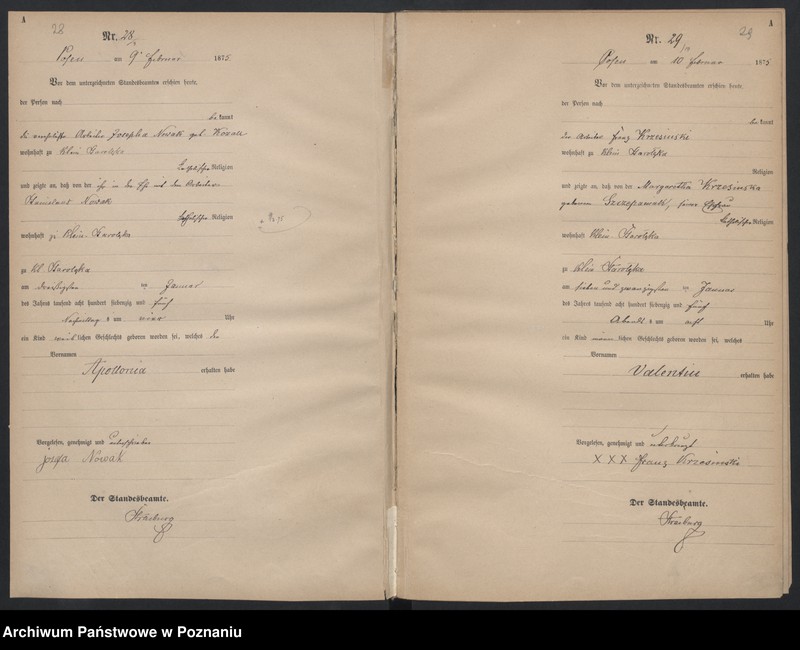 A
28
Nr. 28
Posen am 9 Februar 1875
Vor dem unterzeichneten Standesbeamten erschien heute,
der Person nach
be kannt
die verehelichte Arbeiter Josepha Nowak geb.
wohnhaft zu Klein Starolęka
katholischer Religion
und zeigte an, daß von der ihr in der Ehe mit dem Arbeiter
Stanislaus Nowak
katholischer Religion
wohnhaft zu Klein-Starolęka
zu Kl. Starolęka
am dreißigsten ten Januar
des Jahres tausend acht hundert siebenzig und fünf
Nachmittag s um Uhr
ein Kind weib lichen Geschlechts geboren worden sei, welches den
Vornamen
Apollonia erhalten habe
Vorgelesen, genehmigt und unterschrieben
Nowak
Der Standesbeamte.
A
29
Nr. 29
Posen am 10 Februar 1875
Vor dem unterzeichneten Standesbeamten erschien heute,
der Person nach
be kannt
der Arbeiter Franz Krzesinski
wohnhaft zu Klein Starolęka
Religion
und zeigte an, daß von der Margaretha Krzesinska
geborenen Szczepaniak, seiner Ehefrau
katholischer Religion
wohnhaft Klein Starolęka
zu Klein Starolęka
am sieben und zwanzigsten ten Januar
des Jahres tausend acht hundert siebenzig und fünf
Abends s um acht Uhr
ein Kind männ lichen Geschlechts geboren worden sei, welches
Vornamen
Valentin erhalten habe
Vorgelesen, genehmigt und
X X X Franz Krzesinski
Der Standesbeamte.
Archiwum Państwowe w Poznaniu